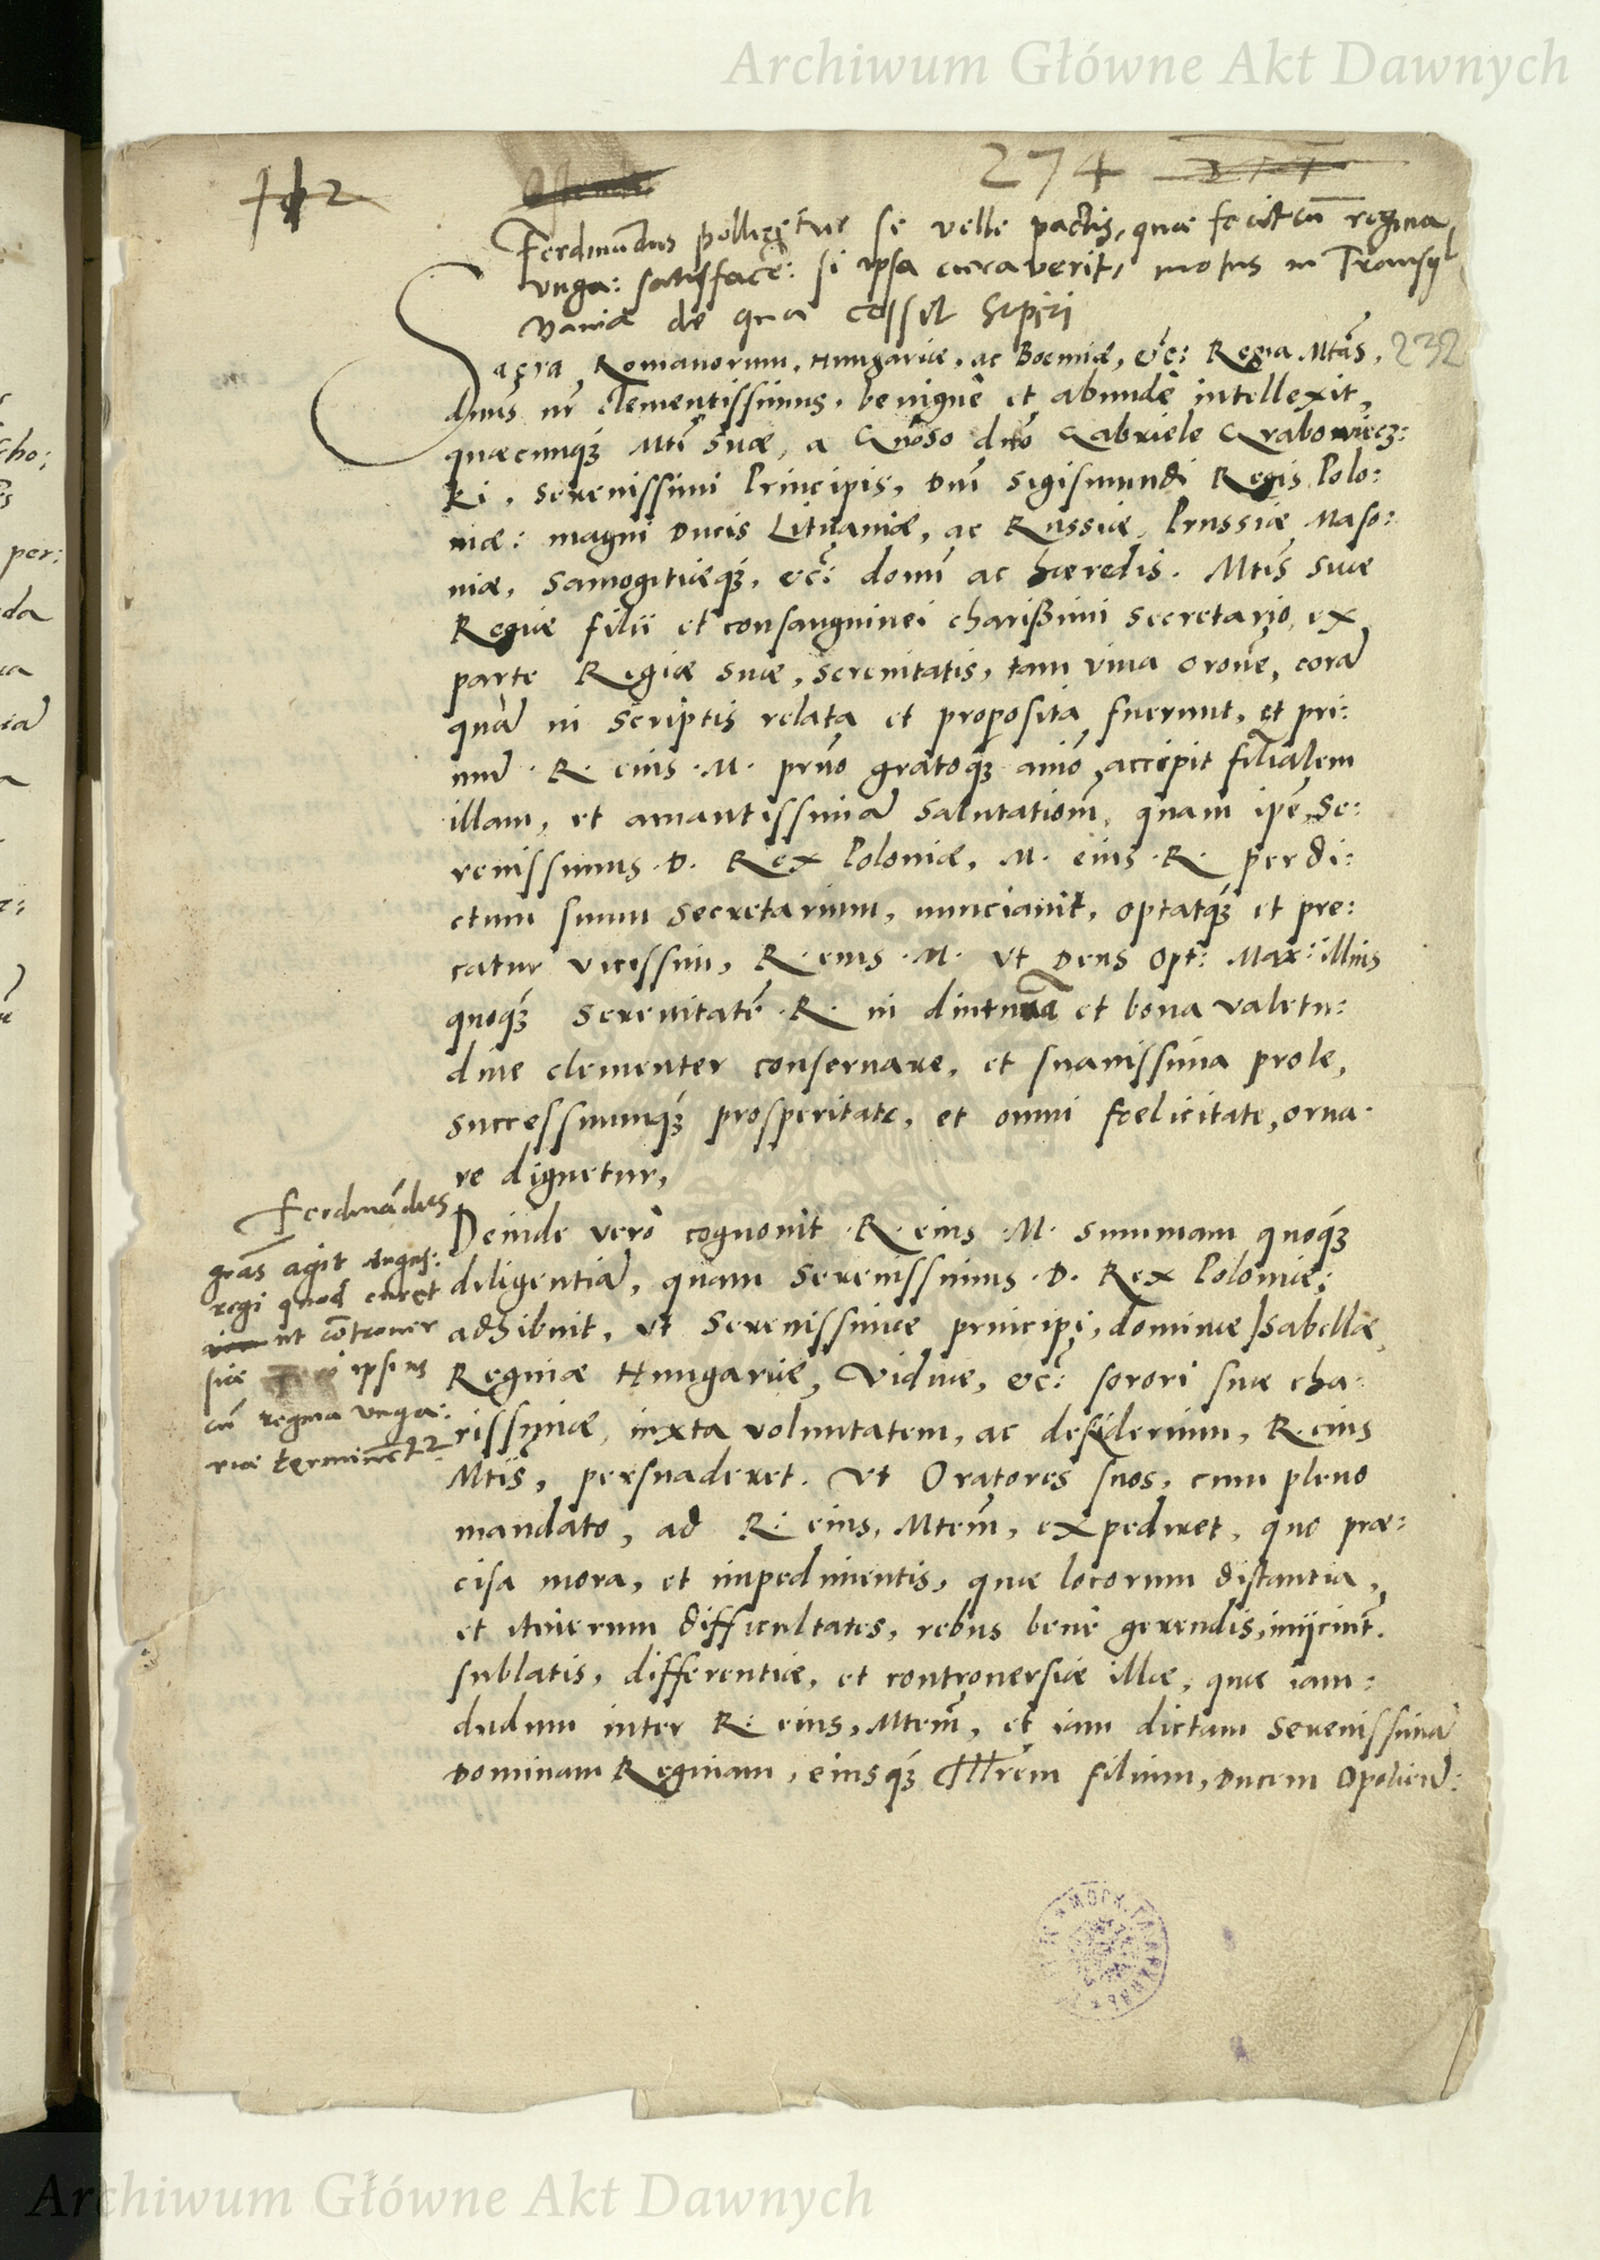 Archiwum Główne Akt Dawnych
274
Ferdinandus pollicetur se velle pactis, quae fecit cu̅ regina
unga: satisfacē: si ipsa curaverit, motus in Transyl
vania de qua cessit sopiri
Sacra, Romanorum, Hungariæ, ac Boemiæ, &c: Regia Mtas, 232
dnus nr̄ clementissimus, benignè et abundè intellexit,
quæcunq́ꝫ Mti suæ, a Gnoso dno Gabriele Grabowiecz:
ki, Serenissimi Principis, Dni Sigismundi Regis Polo:
niæ: magni Ducis Lituaniæ, ac Russiæ, Prussiæ, Maso:
niæ, Samogitiæq́ꝫ, &c: domi ac hæredis. Mtis suæ
Regiæ filii et consanguinei charißimi Secretario, ex
parte Regiæ suæ, serenitatis, tam viua orone, corā
quā in scriptis relata et proposita fuerunt, et pri:
mū · R · eius · M · prno gratoq́ꝫ aīo, accipit filialem
illam, et amantissimā salutationm̄, quam ipē, Se:
renissimus · D · Rex Poloniæ, M · eius · R · per di:
ctum suum Secretarium, nunciauit, optatq́ꝫ et pre:
catur vicissim, R · eius · M · ut Deus Opt: Max: illius
quoq́ꝫ serenitatē · R · in diuturna et bona valetu:
dine clementer conseruare, et suauissima prole,
successuumq́ꝫ prosperitate, et omni foelicitate, orna:
re dignetur,
Ferdinādus
gras agit
regi quod curet
ut cōtrouer
siæ ipsius
cū regina unga:
riæ terminētur
Deinde verò cognouit · R · eius · M · summam quoq́ꝫ
diligentiā, quam Serenissimus · D · Rex Poloniæ;
adhibuit, ut Serenissimæ principi, dominæ Isabellæ,
Reginæ Hungariæ, Viduæ, &c: sorori suæ cha:
rissimæ, iuxta voluntatem, ac desiderium, R. eius
Mtis, persuaderet. Ut Oratores suos, cum pleno
mandato, ad R: eius, Mtem̄, expediret, quo præ:
cisa mora, et impedimentis, quæ locorum distantia,
et itinerum difficultates, rebus benè gerendis, iniiciūt.
sublatis, differentiæ, et controuersiæ illæ, quæ iam:
dudum inter R: eius, Mtem̄, et iam dictam Serenissimā
Dominam Reginam, eiusq́ꝫ Illrem filium, Ducem Opolien̄:
Archiwum Główne Akt Dawnych